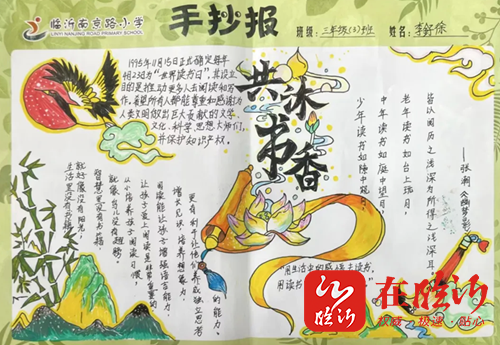 临沂南京路小学
LINYI NANJING ROAD PRIMARY SCHOOL
手抄报
班级：三年级(5)班
姓名：李
1995年11月15日正式确定每年
4月23日为"世界读书日"，其设立
目的是推动更多人去阅读和写
作，希望所有人都能尊重和感谢为
人类文明做出巨大贡献的文学、
文化、科学、思想大师们，
并保护知识产权。
共沐
书香
少年读书如隙中窥月
中年读书如庭中望月
老年读书如台上玩月
皆以阅历之浅深为所得之浅深耳
——张潮《幽梦影》
生活里没有书籍，
就好像没有阳光；
智慧里没有书籍，
就像鸟儿没有翅膀。
从小培养孩子阅读习惯，
让孩子爱上阅读是非常重要的
阅读能让孩子增强语言能力、
增长见识、培养想象力，
更有利于让他们养成独立思考
的能力。
用生活中的感悟去读书，
用读书
在临沂
权威·极速·贴心